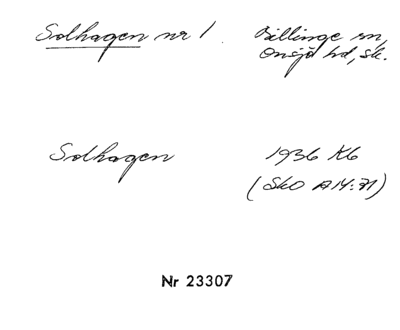 Solhagen nr 1. Billinge sn,
Onsjö hd, Sk.
Solhagen 1936 K6
(SkO A14:71)
Nr 23307